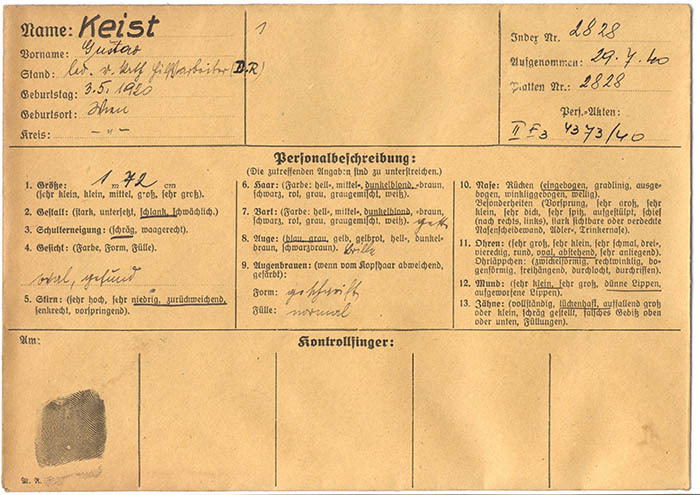 Name: Keist
Vorname: Gustav
Stand: led. r. kath. Hilfsarbeiter (D.R)
Geburtstag: 3.5.1920
Geburtsort: Wien
Kreis: -„-
1
Index Nr. 2828
Aufgenommen: 29.7.40
Platten Nr.: 2828
Pers.-Akten:
II F3 4373/40
Personalbeschreibung:
(Die zutreffenden Angaben sind zu unterstreichen.)
1. Größe: 1 m 72 cm
(sehr klein, klein, mittel, groß, sehr groß).
2. Gestalt: (stark, untersetzt, schlank, schwächlich).
3. Schulterneigung: (schräg, waagerecht).
4. Gesicht: (Farbe, Form, Fülle).
oval, gesund
5. Stirn: (sehr hoch, sehr niedrig, zurückweichend,
senkrecht, vorspringend).
6. Haar: (Farbe: hell-, mittel-, dunkelblond, -braun,
schwarz, rot, grau, graugemischt, weiß).
7. Bart: (Farbe: hell-, mittel-, dunkelblond, -braun,
schwarz, rot, grau, graugemischt, weiß).
8. Auge: (blau, grau, gelb, gelbrot, hell-, dunkel-
braun, schwarzbraun). Brille
9. Augenbrauen: (wenn vom Kopfhaar abweichend,
gefärbt):
Form: geschweift
Fülle: normal
10. Nase: Rücken (eingebogen, gradlinig, ausge-
bogen, winkliggebogen, wellig).
Besonderheiten (Vorsprung, sehr groß, sehr
klein, sehr dick, sehr spitz, aufgestülpt, schief
nach rechts, links), stark sichtbare oder verdeckte
Nasenscheidewand, Adler-, Trinkernase).
11. Ohren: (sehr groß, sehr klein, sehr schmal, drei-,
viereckig, rund, oval, abstehend, sehr anliegend).
Ohrläppchen: (zwickelförmig, rechtwinklig, bo-
genförmig, freihängend, durchlocht, durchrissen).
12. Mund: (sehr klein, sehr groß, dünne Lippen,
aufgeworfene Lippen).
13. Zähne: (vollständig, lückenhaft, auffallend groß
oder klein, schräg gestellt, falsches Gebiß oben
oder unten, Füllungen).
Am:
Kontrollfinger: